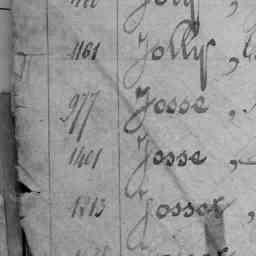 1161 Jolly,
977 Josse,
1401 Josse,
1713 Josset,